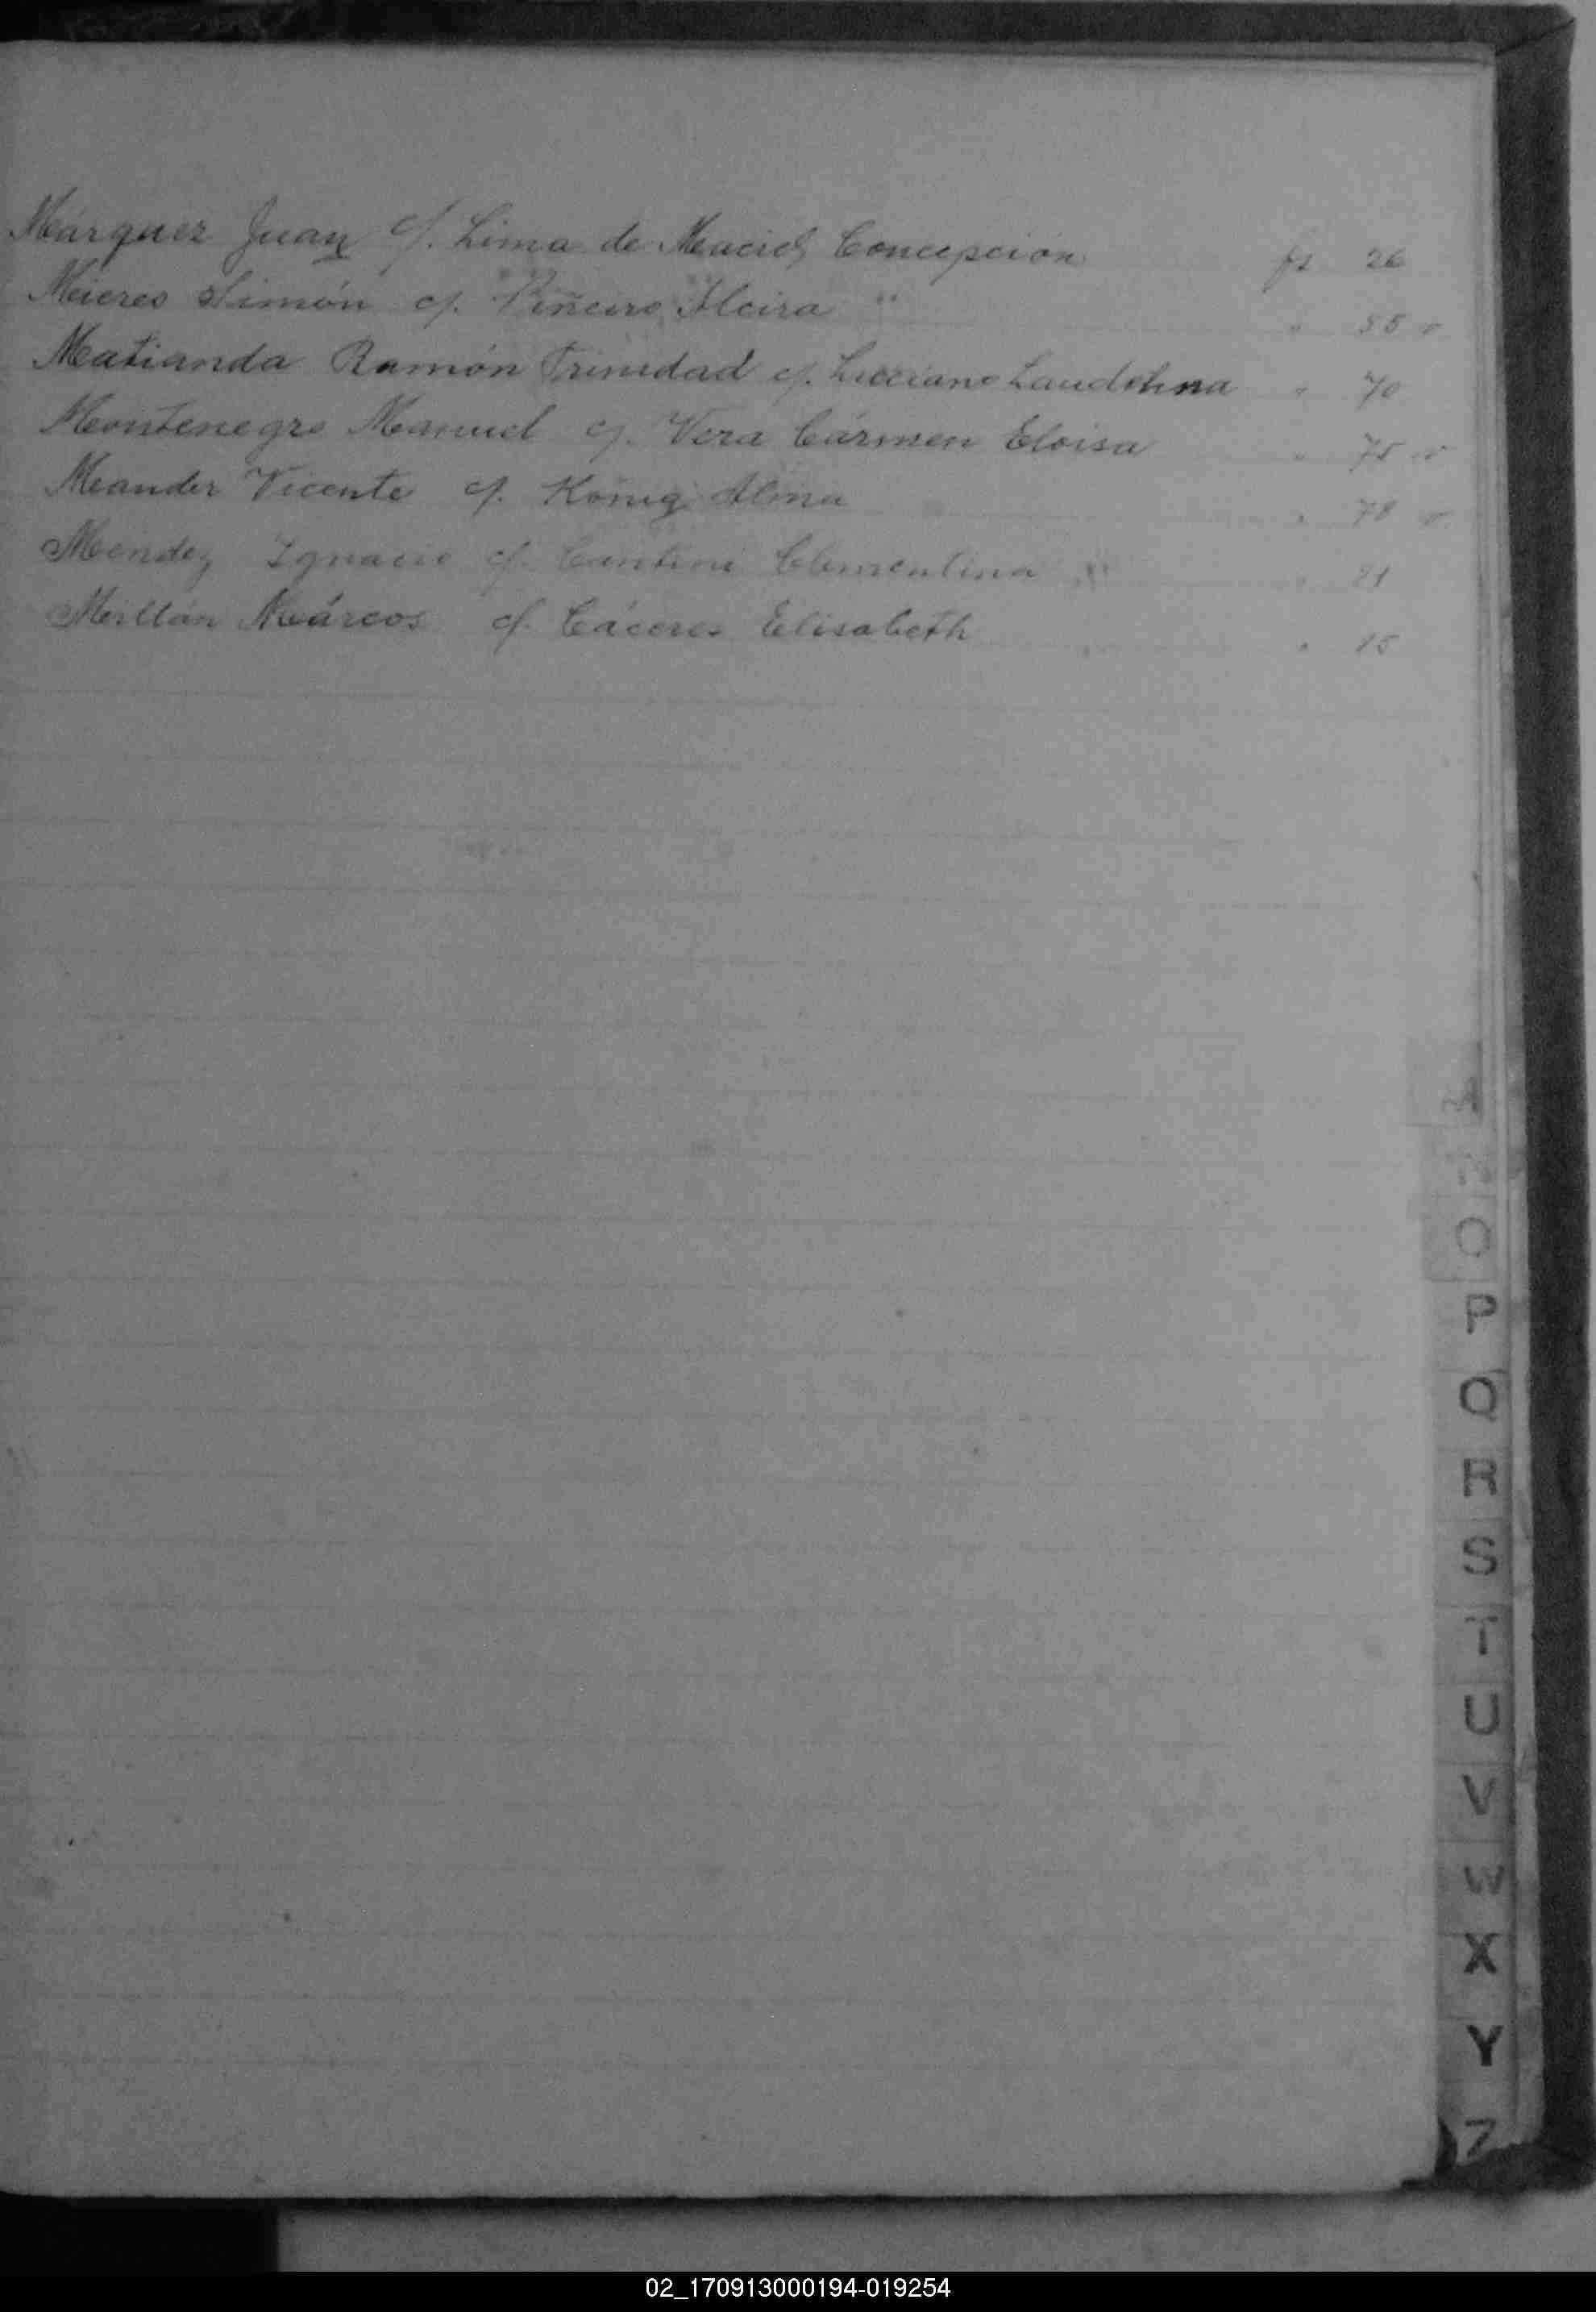 Márquez Juan c/. Lima de Maciel Concepción fs 26
Meieres Simón c/. Piñeiro Alcira " 55 v
Matianda Ramón Trinidad c/. Lucciano Laudelina " 70
Montenegro Manuel c/. Vera Cármen Eloisa " 75 v
Meander Vicente c/. König Alma " 78 v
Mendez Ignacio c/. Cantini Clementina "
Millán Márcos c/. Cáceres Elisabeth " 15
O
P
Q
R
S
T
U
V
W
X
Y
Z
02_170913000194-019254